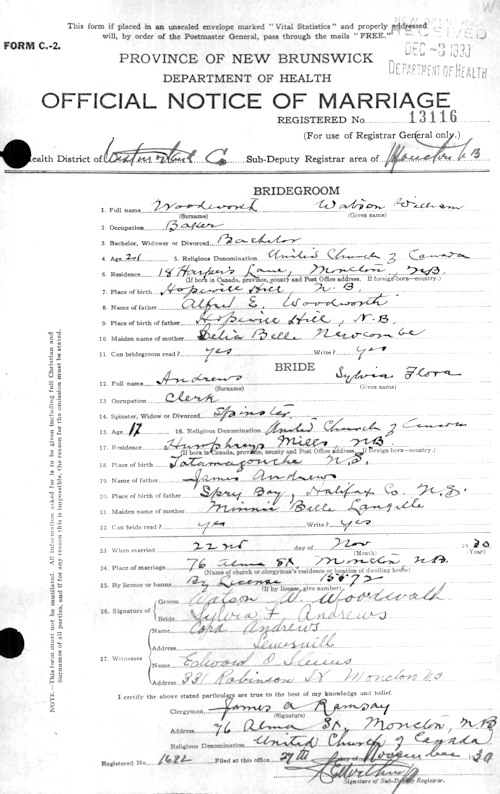 This form if placed in an unsealed envelope marked "Vital Statistics" and properly addressed
will, by order of the Postmaster General, pass through the mails "FREE."
FORM C.-2.
RECEIVED
DEC -3 1930
DEPARTMENT OF HEALTH
PROVINCE OF NEW BRUNSWICK
DEPARTMENT OF HEALTH
OFFICIAL NOTICE OF MARRIAGE
REGISTERED No. 13116
(For use of Registrar General only.)
Health District of Westmorland Co. Sub-Deputy Registrar area of Moncton NB
BRIDEGROOM
1. Full name Woodworth Watson William
(Surname) (Given name)
2. Occupation Baker
3. Bachelor, Widower or Divorced Bachelor
4. Age 21 5. Religious Denomination United Church of Canada
6. Residence 18 Harper's Lane, Moncton, N.B.
(If born in Canada, province, county and Post Office address. If foreign-born—country.)
7. Place of birth Hopewell Hill N.B.
8. Name of father Alfred E. Woodworth
9. Place of birth of father Hopewell Hill, N.B.
10. Maiden name of mother Delia Belle Newcombe
11. Can bridegroom read? yes Write? yes
BRIDE
12. Full name Andrews Sylvia Flora
(Surname) (Given name)
13. Occupation Clerk
14. Spinster, Widow or Divorced Spinster
15. Age 17 16. Religious Denomination United Church of Canada
17. Residence Humphreys Mills, NB.
(If born in Canada, province, county and Post Office address. If foreign-born—country.)
18. Place of birth Tatamagouche N.S.
19. Name of father James Andrews
20. Place of birth of father Spry Bay, Halifax Co. N.S.
21. Maiden name of mother Minnie Belle Langille
22. Can bride read? yes Write? yes
23. When married 22nd day of Nov 1930
(Month)
24. Place of marriage 76 Alma St. Moncton N.B.
(Name of church or clergyman's residence or location of dwelling house)
25. By license or banns By License 15572
(If by license, give number)
26. Signature of
Groom Watson W. Woodworth
Bride Sylvia F Andrews
27. Witnesses
Name Cora Andrews
Address
Name Edward O Steeves
Address 331 Robinson St Moncton NB
I certify the above stated particulars are true to the best of my knowledge and belief.
Clergyman James A Ramsay
(Signature)
Address 76 Alma St. Moncton, NB
Religious Denomination United Church of Canada
Registered No. 1682 Filed at this office 29th November 30
Signature of Sub-Deputy Registrar.
NOTE.—This form must not be mutilated. All information asked for is to be given including full Christian and
Surnames of all parties, and if for any reason this is impossible, the reason for the omission must be stated.